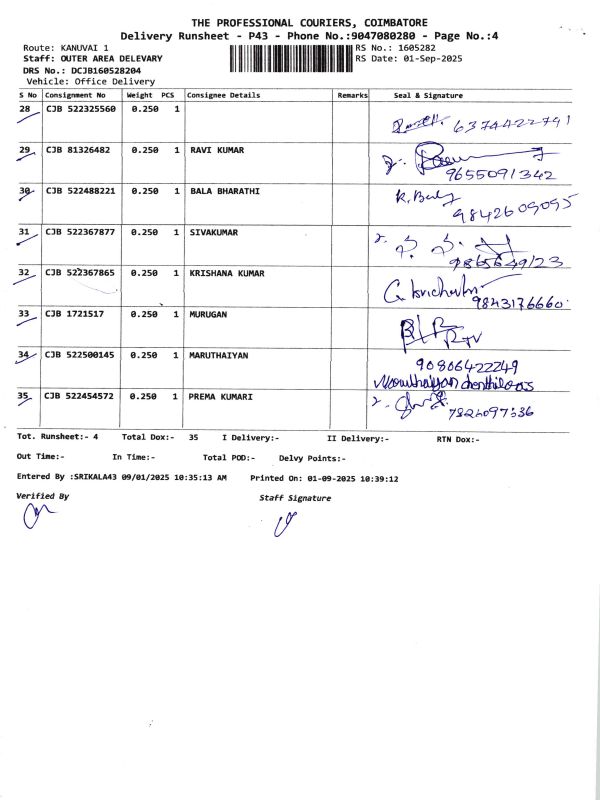 THE PROFESSIONAL COURIERS, COIMBATORE
Delivery Runsheet - P43 - Phone No.:9047080280 - Page No.:4
Route: KANUVAI 1 RS No.: 1605282
Staff: OUTER AREA DELEVARY RS Date: 01-Sep-2025
DRS No.: DCJB160528204
Vehicle: Office Delivery
S No Consignment No Weight PCS Consignee Details Remarks Seal & Signature
28 CJB 522325560 0.250 1
6374422791
29 CJB 81326482 0.250 1 RAVI KUMAR
9655091342
30 CJB 522488221 0.250 1 BALA BHARATHI K. Baly
9842609095
31 CJB 522367877 0.250 1 SIVAKUMAR
9865649123
32 CJB 522367865 0.250 1 KRISHANA KUMAR
9843176660
33 CJB 1721517 0.250 1 MURUGAN
34 CJB 522500145 0.250 1 MARUTHAIYAN
90806422249
35 CJB 522454572 0.250 1 PREMA KUMARI
Tot. Runsheet:- 4 Total Dox:- 35 I Delivery:- II Delivery:- RTN Dox:-
Out Time:- In Time:- Total POD:- Delvy Points:-
Entered By :SRIKALA43 09/01/2025 10:35:13 AM Printed On: 01-09-2025 10:39:12
Verified By Staff Signature